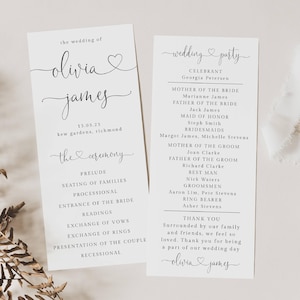 the wedding of
olivia
james
15.05.23
kew gardens, richmond
the ceremony
PRELUDE
SEATING OF FAMILIES
PROCESSIONAL
ENTRANCE OF THE BRIDE
READINGS
EXCHANGE OF VOWS
EXCHANGE OF RINGS
PRESENTATION OF THE COUPLE
RECESSIONAL
wedding party
CELEBRANT
Georgia Petersen
MOTHER OF THE BRIDE
Marianne James
FATHER OF THE BRIDE
Jack James
MAID OF HONOR
Steph Smith
BRIDESMAIDS
Margot James, Michelle Stevens
MOTHER OF THE GROOM
Joan Clarke
FATHER OF THE GROOM
Richard Clarke
BEST MAN
Nick Waters
GROOMSMEN
Aaron Lim, Pete Stevens
RING BEARER
Asher Stevens
THANK YOU
Surrounded by our family
and friends, we feel so
loved. Thank you for being
a part of our wedding day
olivia james